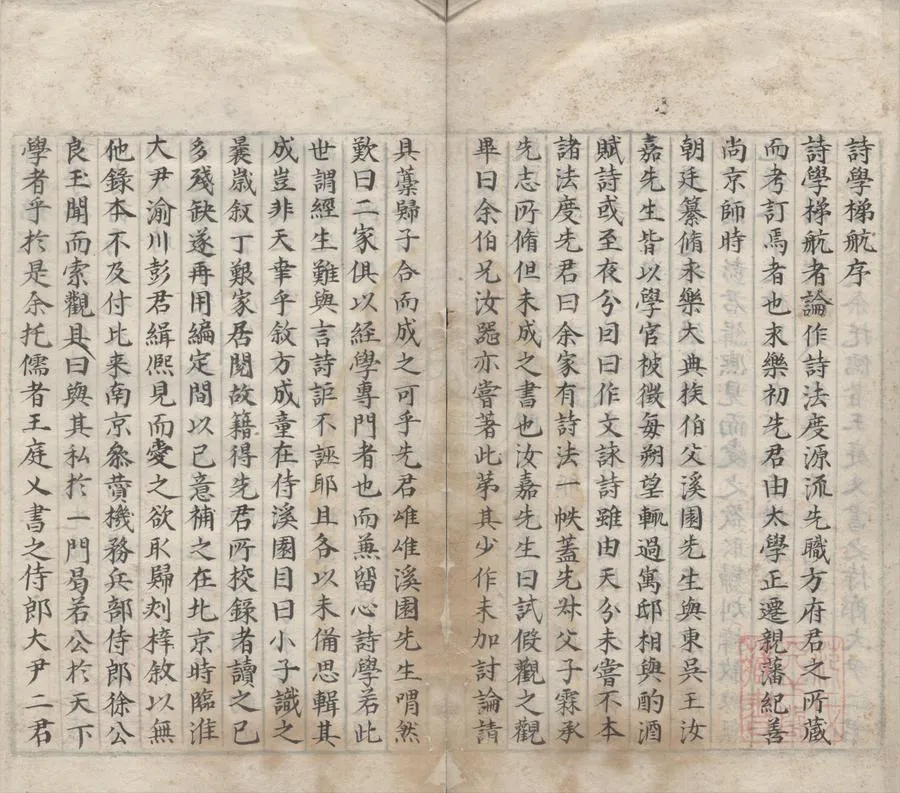 詩學梯航序
詩學梯航者論作詩法度源流先職方府君之所蔵
而考訂焉者也永樂初先君由太學正遷親藩紀善
尚京師時
朝廷纂脩永樂大典族伯父溪園先生與東吳王汝
嘉先生皆以學官被徵每朔望輒過寓邸相與酌酒
賦詩或至夜分因曰作文詠詩雖由天分未嘗不本
諸法度先君曰余家有詩法一帙蓋先叔父子霖承
先志所脩但未成之書也汝嘉先生曰試假觀之觀
畢曰余伯兄汝器亦嘗著此第其少作未加討論請
具藁歸子合而成之可乎先君唯唯溪園先生喟然
歎曰二家俱以経學專門者也而兼留心詩學若此
世謂經生難與言詩詎不誣耶且各以未備思輯其
成豈非天幸乎敘方成童在侍溪園目曰小子識之
曩歲叙丁艱家居閱故籍得先君所校錄者讀之已
多殘缺遂再用編定間以已意補之在北京時臨淮
大尹渝川彭君緝熈見而愛之欲取歸刻梓敘以無
他錄本不及付比来南京叅賛機務兵部侍郎徐公
良玉聞而索觀且曰與其私於一門曷若公於天下
學者乎於是余托儒者王庭乂書之侍郎大尹二君